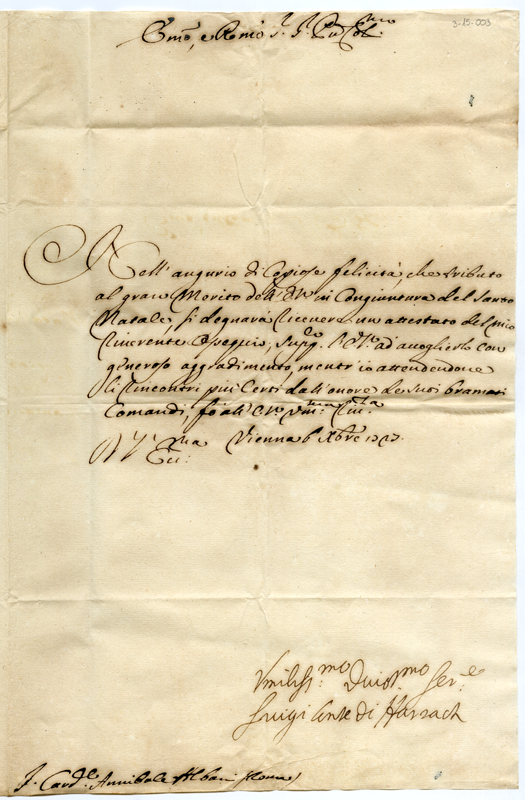 3-15-003
Emo, e Rmo Sr. Sr. Pne Colmo
Nell' augurio di Copiose felicità, che tributo
al gran Merito dell' E.V. in Congiuntura del Santo
Natale, si degnarà ricevere un attestato del mio
riverente Ossequio; Suppco l'E.V. ad accoglierlo con
generoso aggradimento, mentr' io attendendone
li rincontri più Certi dall' onore de suoi bramati
Comandi, fo all' E.V. Umma Rivza
D. V. Emza Vienna 6 Xbre 1727.
Umiliss.mo Divot.mo Ser.e
Luigi Conte di Harrach
S. Card.le Annibale Albani Roma